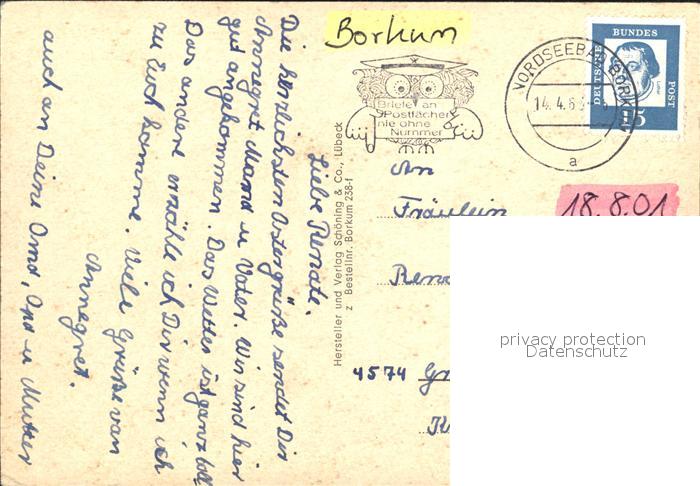 Borkum
Briefe an
Postfächer
nie ohne
Nummer
NORDSEEBAD BORKUM
14.4.6
a
DEUTSCHE BUNDESPOST
Luther
15
18.8.01
An
Fräulein
Rena
4574 Gr
privacy protection
Datenschutz
Hersteller und Verlag Schöning & Co., Lübeck
z Bestellnr. Borkum 238-f
Liebe Renate.
Die herzlichsten Ostergrüße sendet Dir
Annegret Mama u Vater. Wir sind hier
gut angekommen. Das Wetter ist ganz toll
Das andere erzähle ich Dir wenn ich
zu Euch komme. Viele Grüße von
Annegret.
auch an Deine Oma, Opa u Mutter